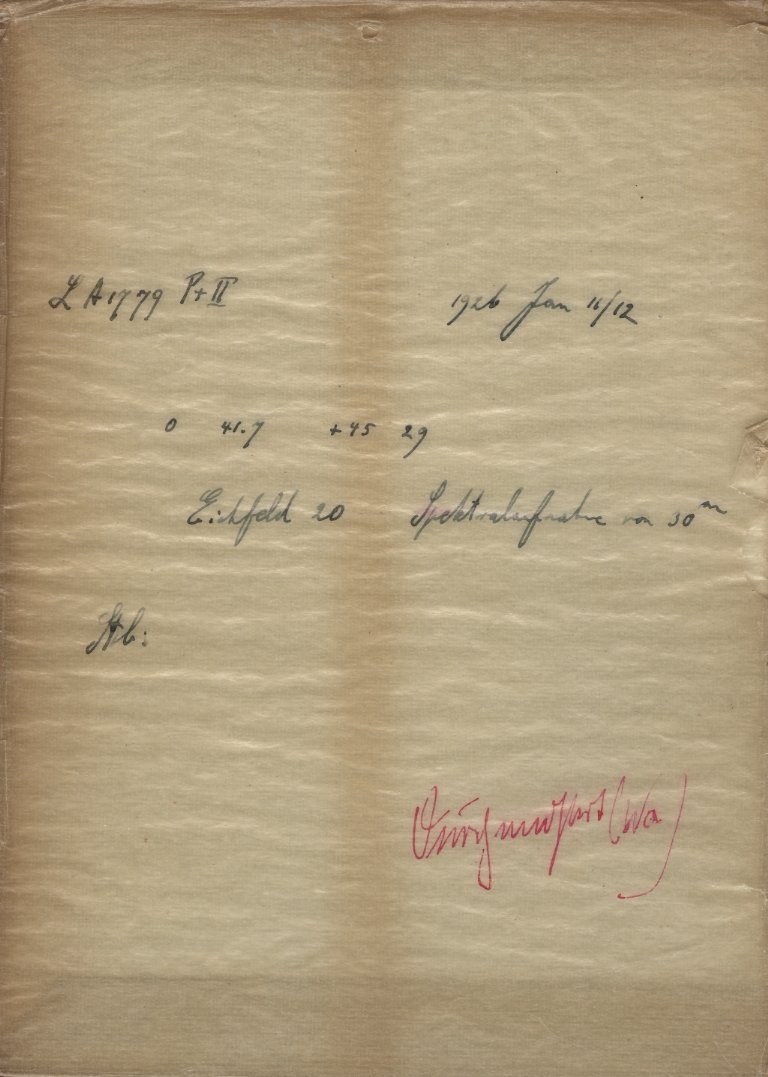 L A 1779 P+II 1926 Jan 11/12
0 41.7 +45 29
Eichfeld 20 Spektralaufnahme von 30ᵐ
Stb:
Durchmustert (Wa)